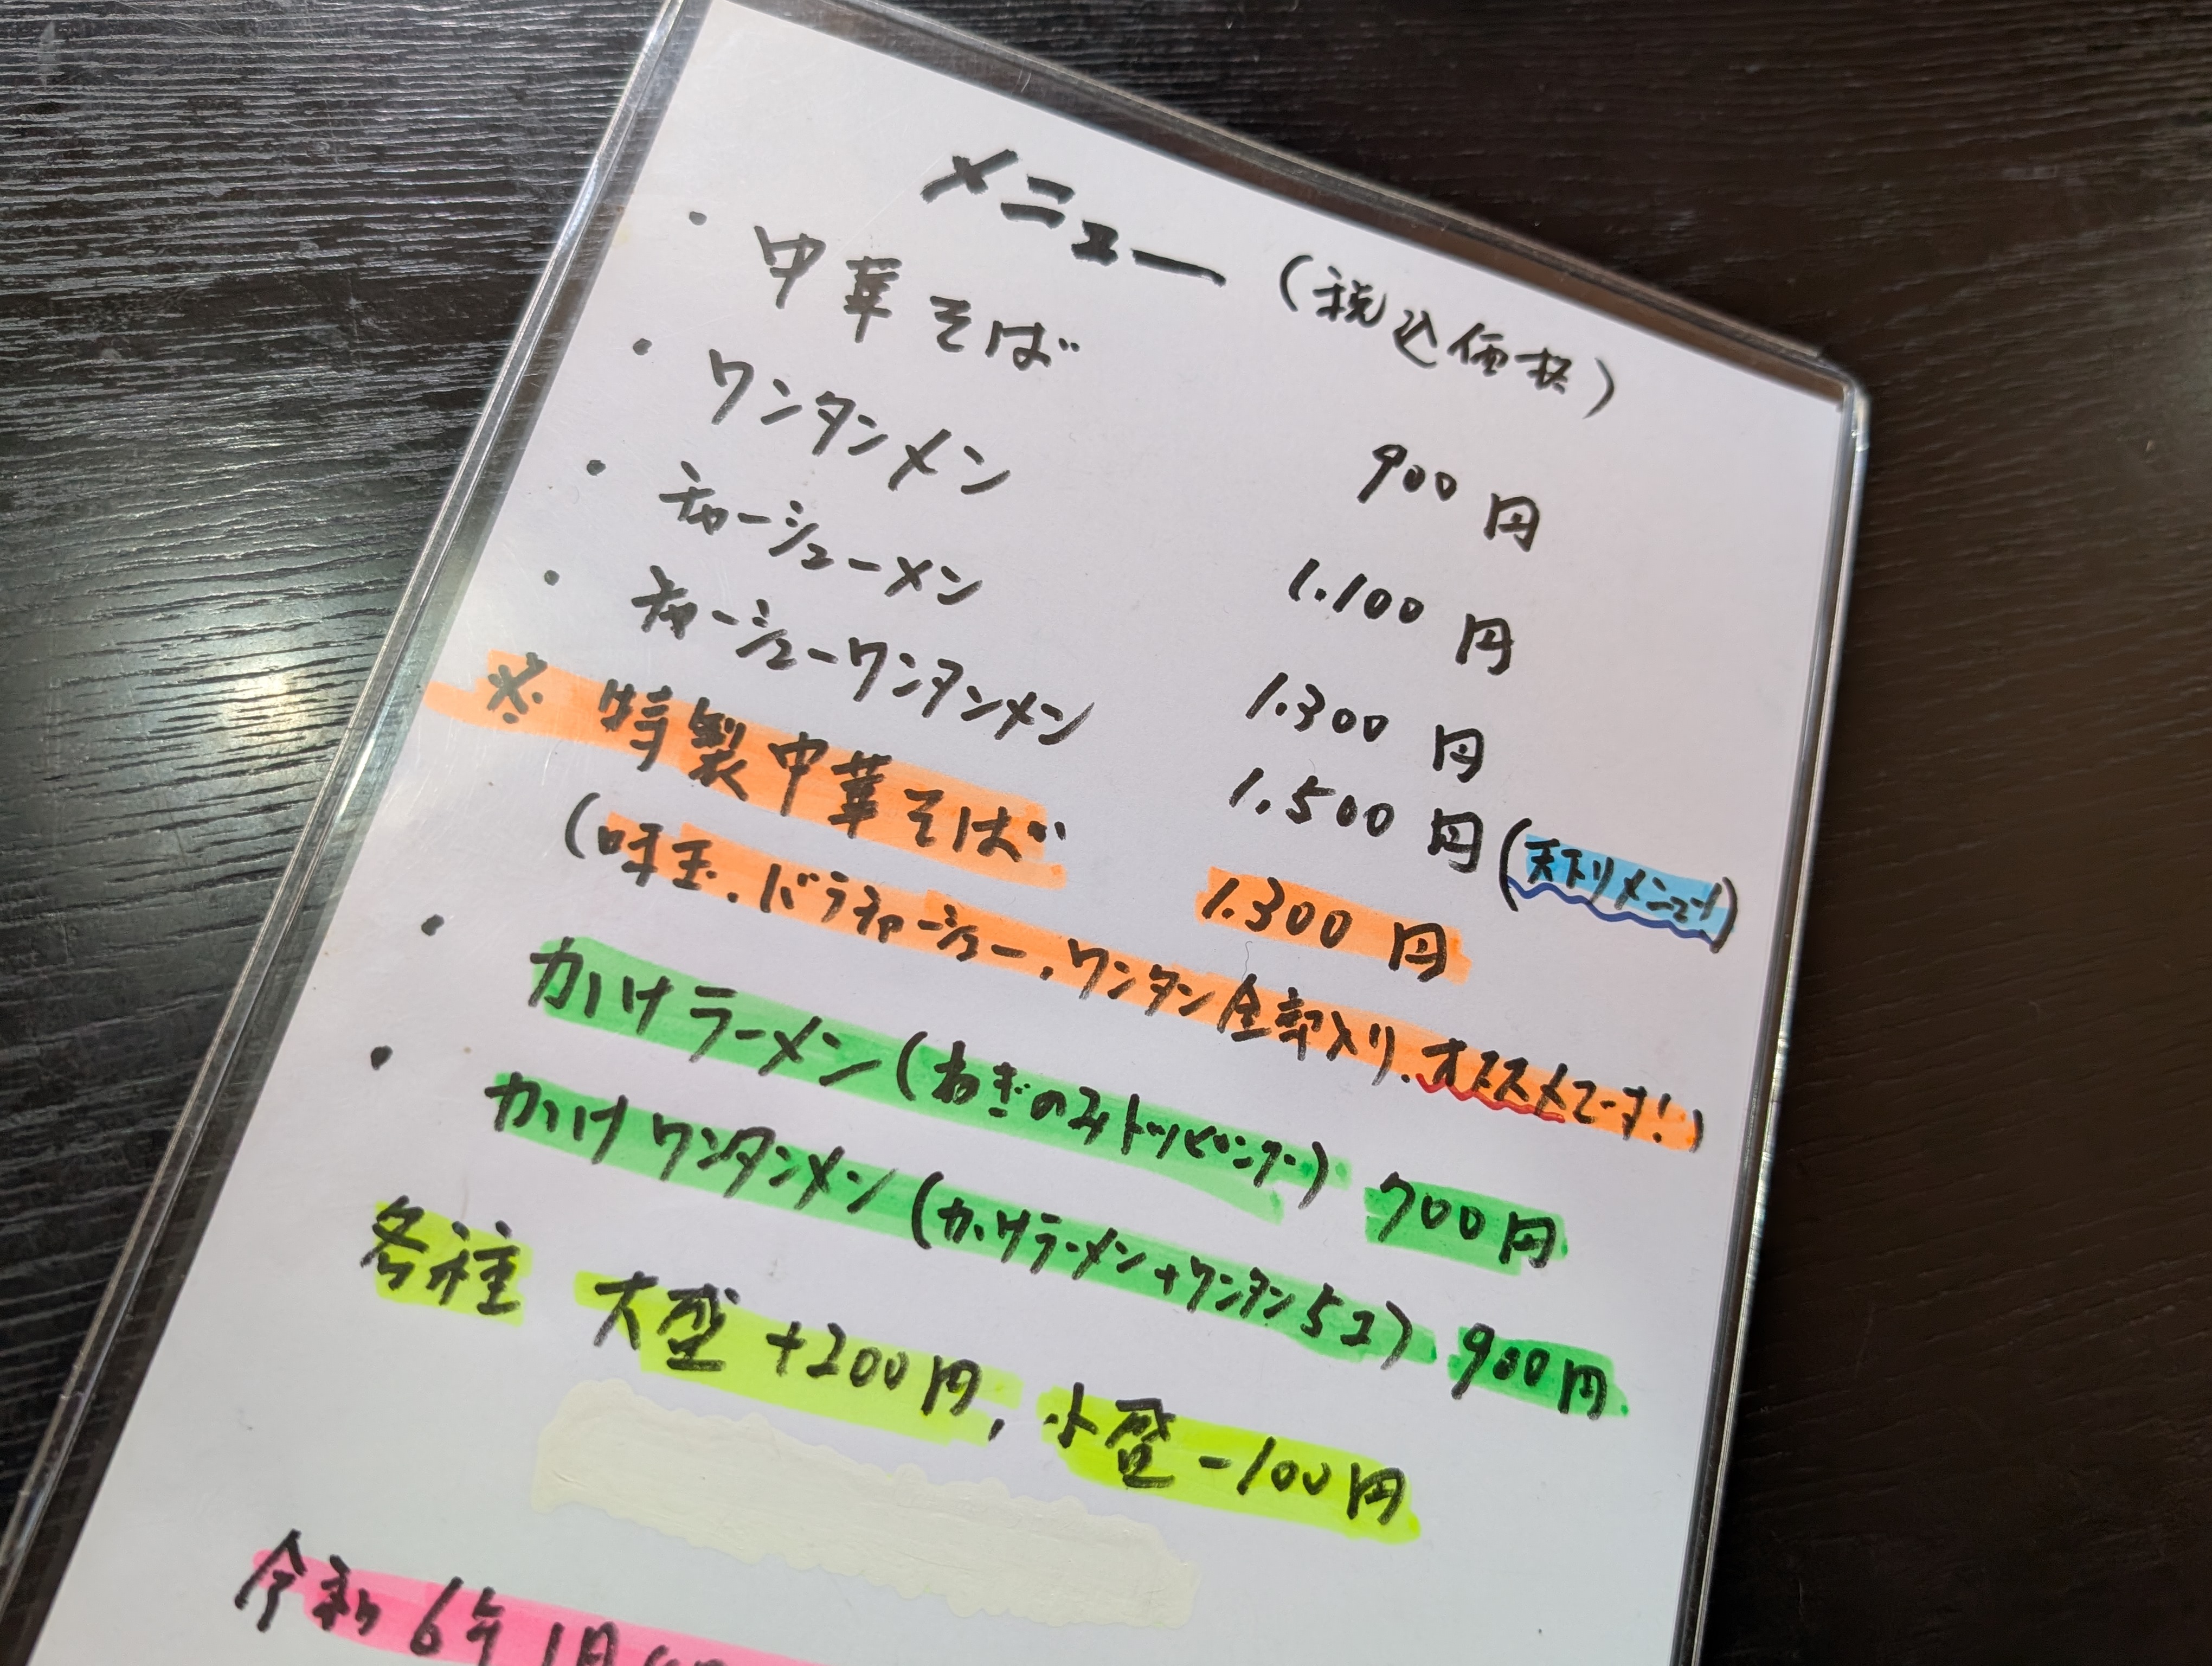 メニュー (税込価格)
・ 中華そば 900円
・ ワンタンメン 1.100円
・ チャーシューメン 1.300円
・ チャーシューワンタンメン 1.500円 (天下リメニュー)
※ 特製中華そば 1.300円
(味玉、バラチャーシュー、ワンタン全部入り、オススメです!)
・ かけラーメン(ねぎのみトッピング) 700円
・ かけワンタンメン(かけラーメン+ワンタン5コ) 900円
各種 大盛+200円、小盛-100円
令和6年1月